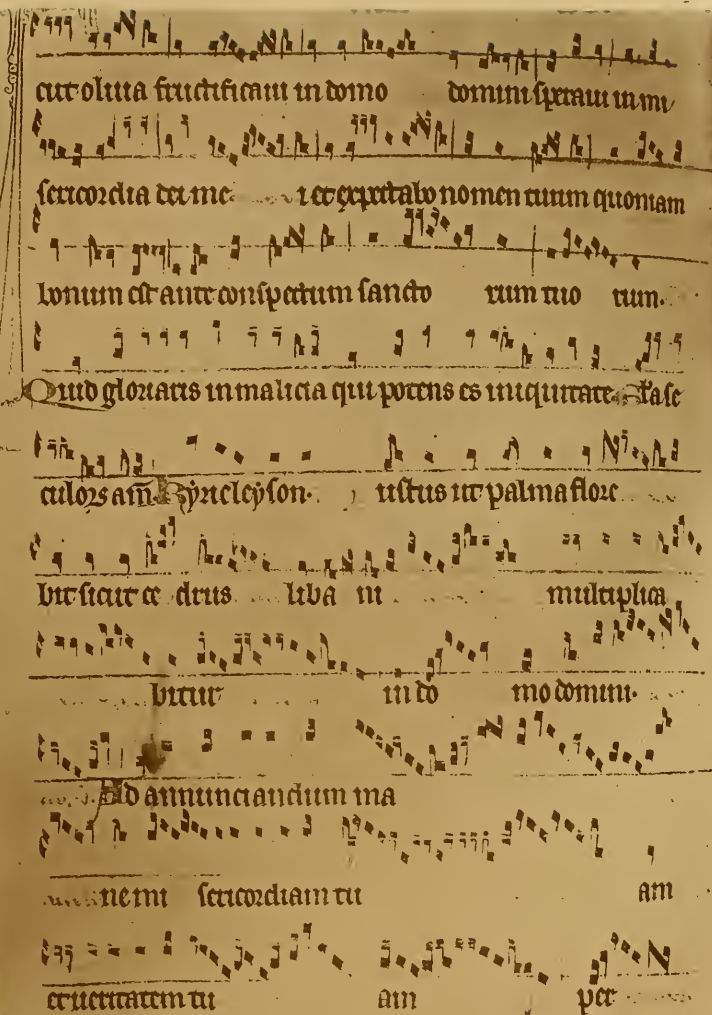 cut oliua fructificaui in domo domini speraui in mi
sericordia dei me i et expectabo nomen tuum quoniam
bonum est ante conspectum sancto rum tuo rum.
Quid gloriaris in malicia qui potens es iniquitate
culorũ am̃. Kyrieleyson. ustus ut palma flore
bit sicut ce drus liba ni multiplica
bitur in do mo domini.
Ad annunciandum ma
ne mi sericordiam tu am
et ueritatem tu am per